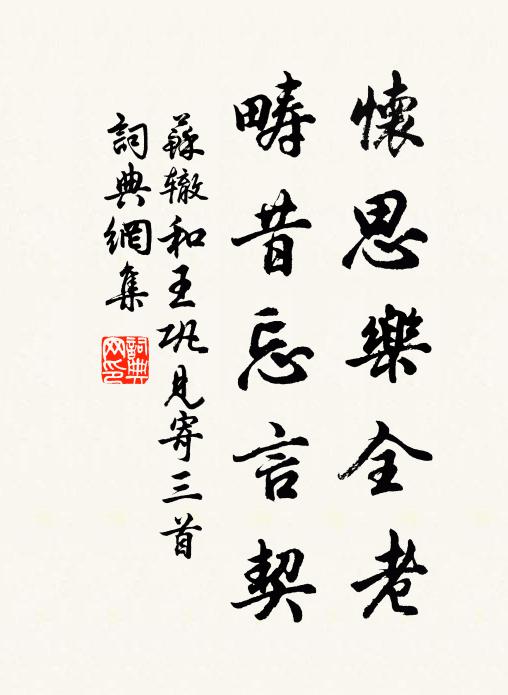 懷思樂全老
疇昔忘言契
蘇辙和王巩見寄三首
詞典網集
詞典网印